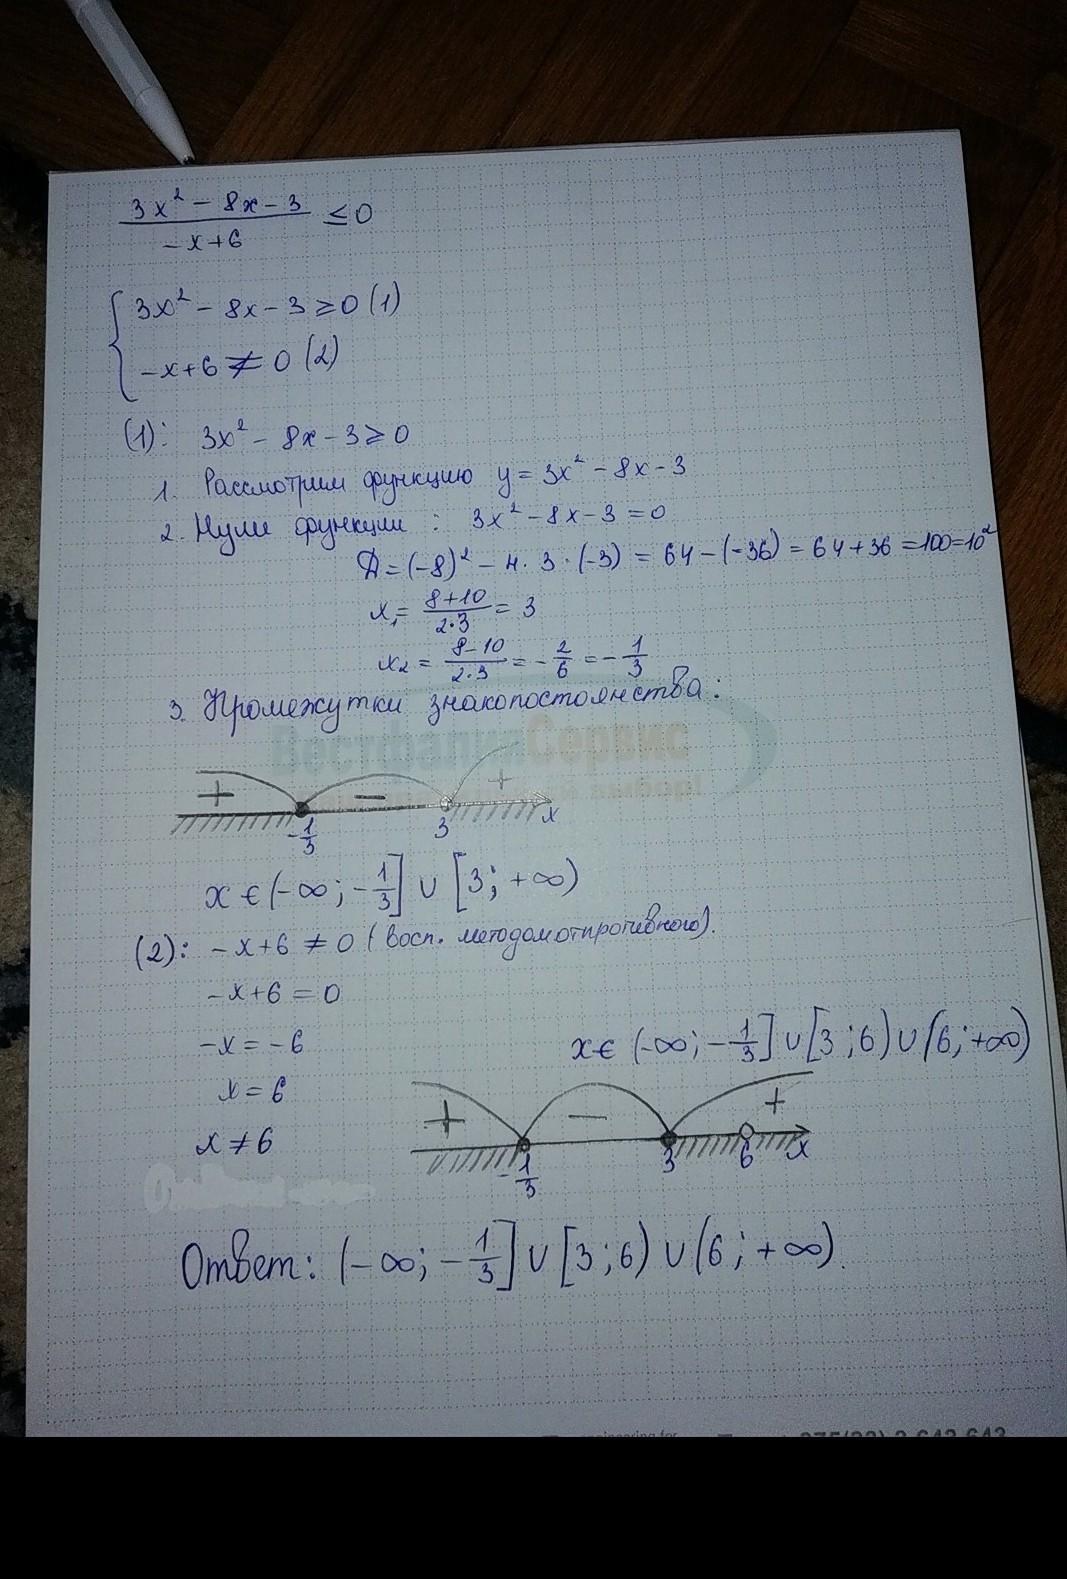 3x² - 8x - 3 / -x + 6 ≤ 0
{ 3x² - 8x - 3 ≥ 0 (1)
-x + 6 ≠ 0 (2)
(1): 3x² - 8x - 3 ≥ 0
1. Рассмотрим функцию y = 3x² - 8x - 3
2. Нули функции : 3x² - 8x - 3 = 0
Д = (-8)² - 4 · 3 · (-3) = 64 - (-36) = 64 + 36 = 100 = 10²
x₁ = 8+10 / 2·3 = 3
x₂ = 8-10 / 2·3 = - 2/6 = - 1/3
3. Промежутки знакопостоянства:
ВестфалиаСервис
выбор!
+ - +
-1/3 3 x
x ∈ (-∞; -1/3] ∪ [3; +∞)
(2): -x + 6 ≠ 0 (восп. методом от противного).
-x + 6 = 0
-x = -6
x = 6
x ≠ 6
x ∈ (-∞; -1/3] ∪ [3; 6) ∪ (6; +∞)
+ - +
-1/3 3 6 x
Ответ: (-∞; -1/3] ∪ [3; 6) ∪ (6; +∞).